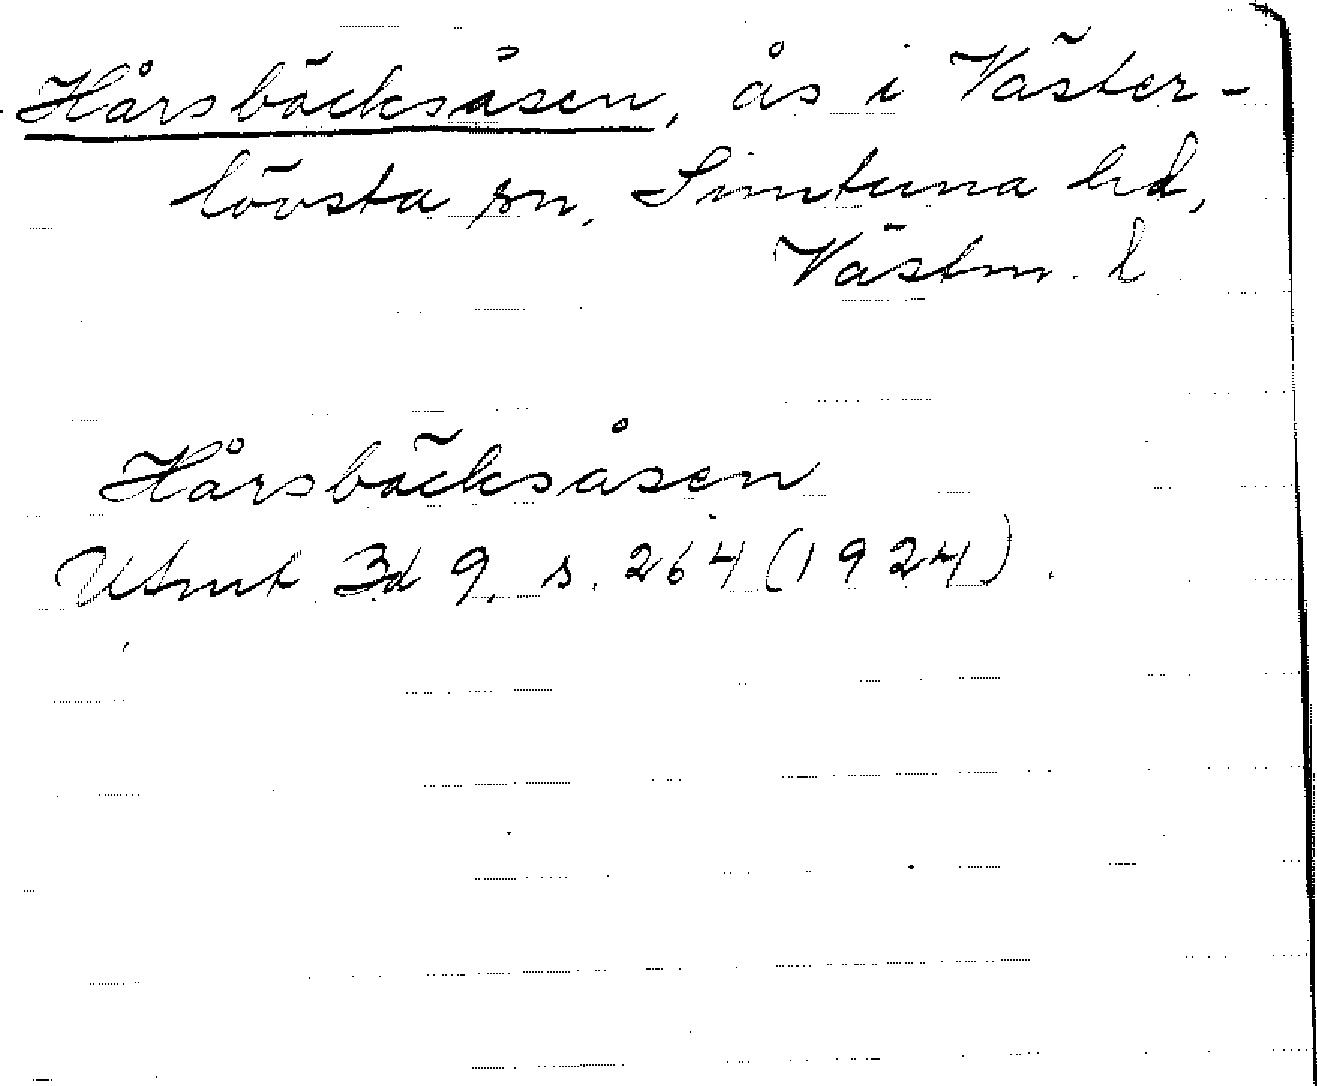 Hårsbäcksåsen, ås i Väster-
lövsta sn, Simtuna hd,
Västm. l
Hårsbäcksåsen
Utmt Bd 9, s. 264 (1924).